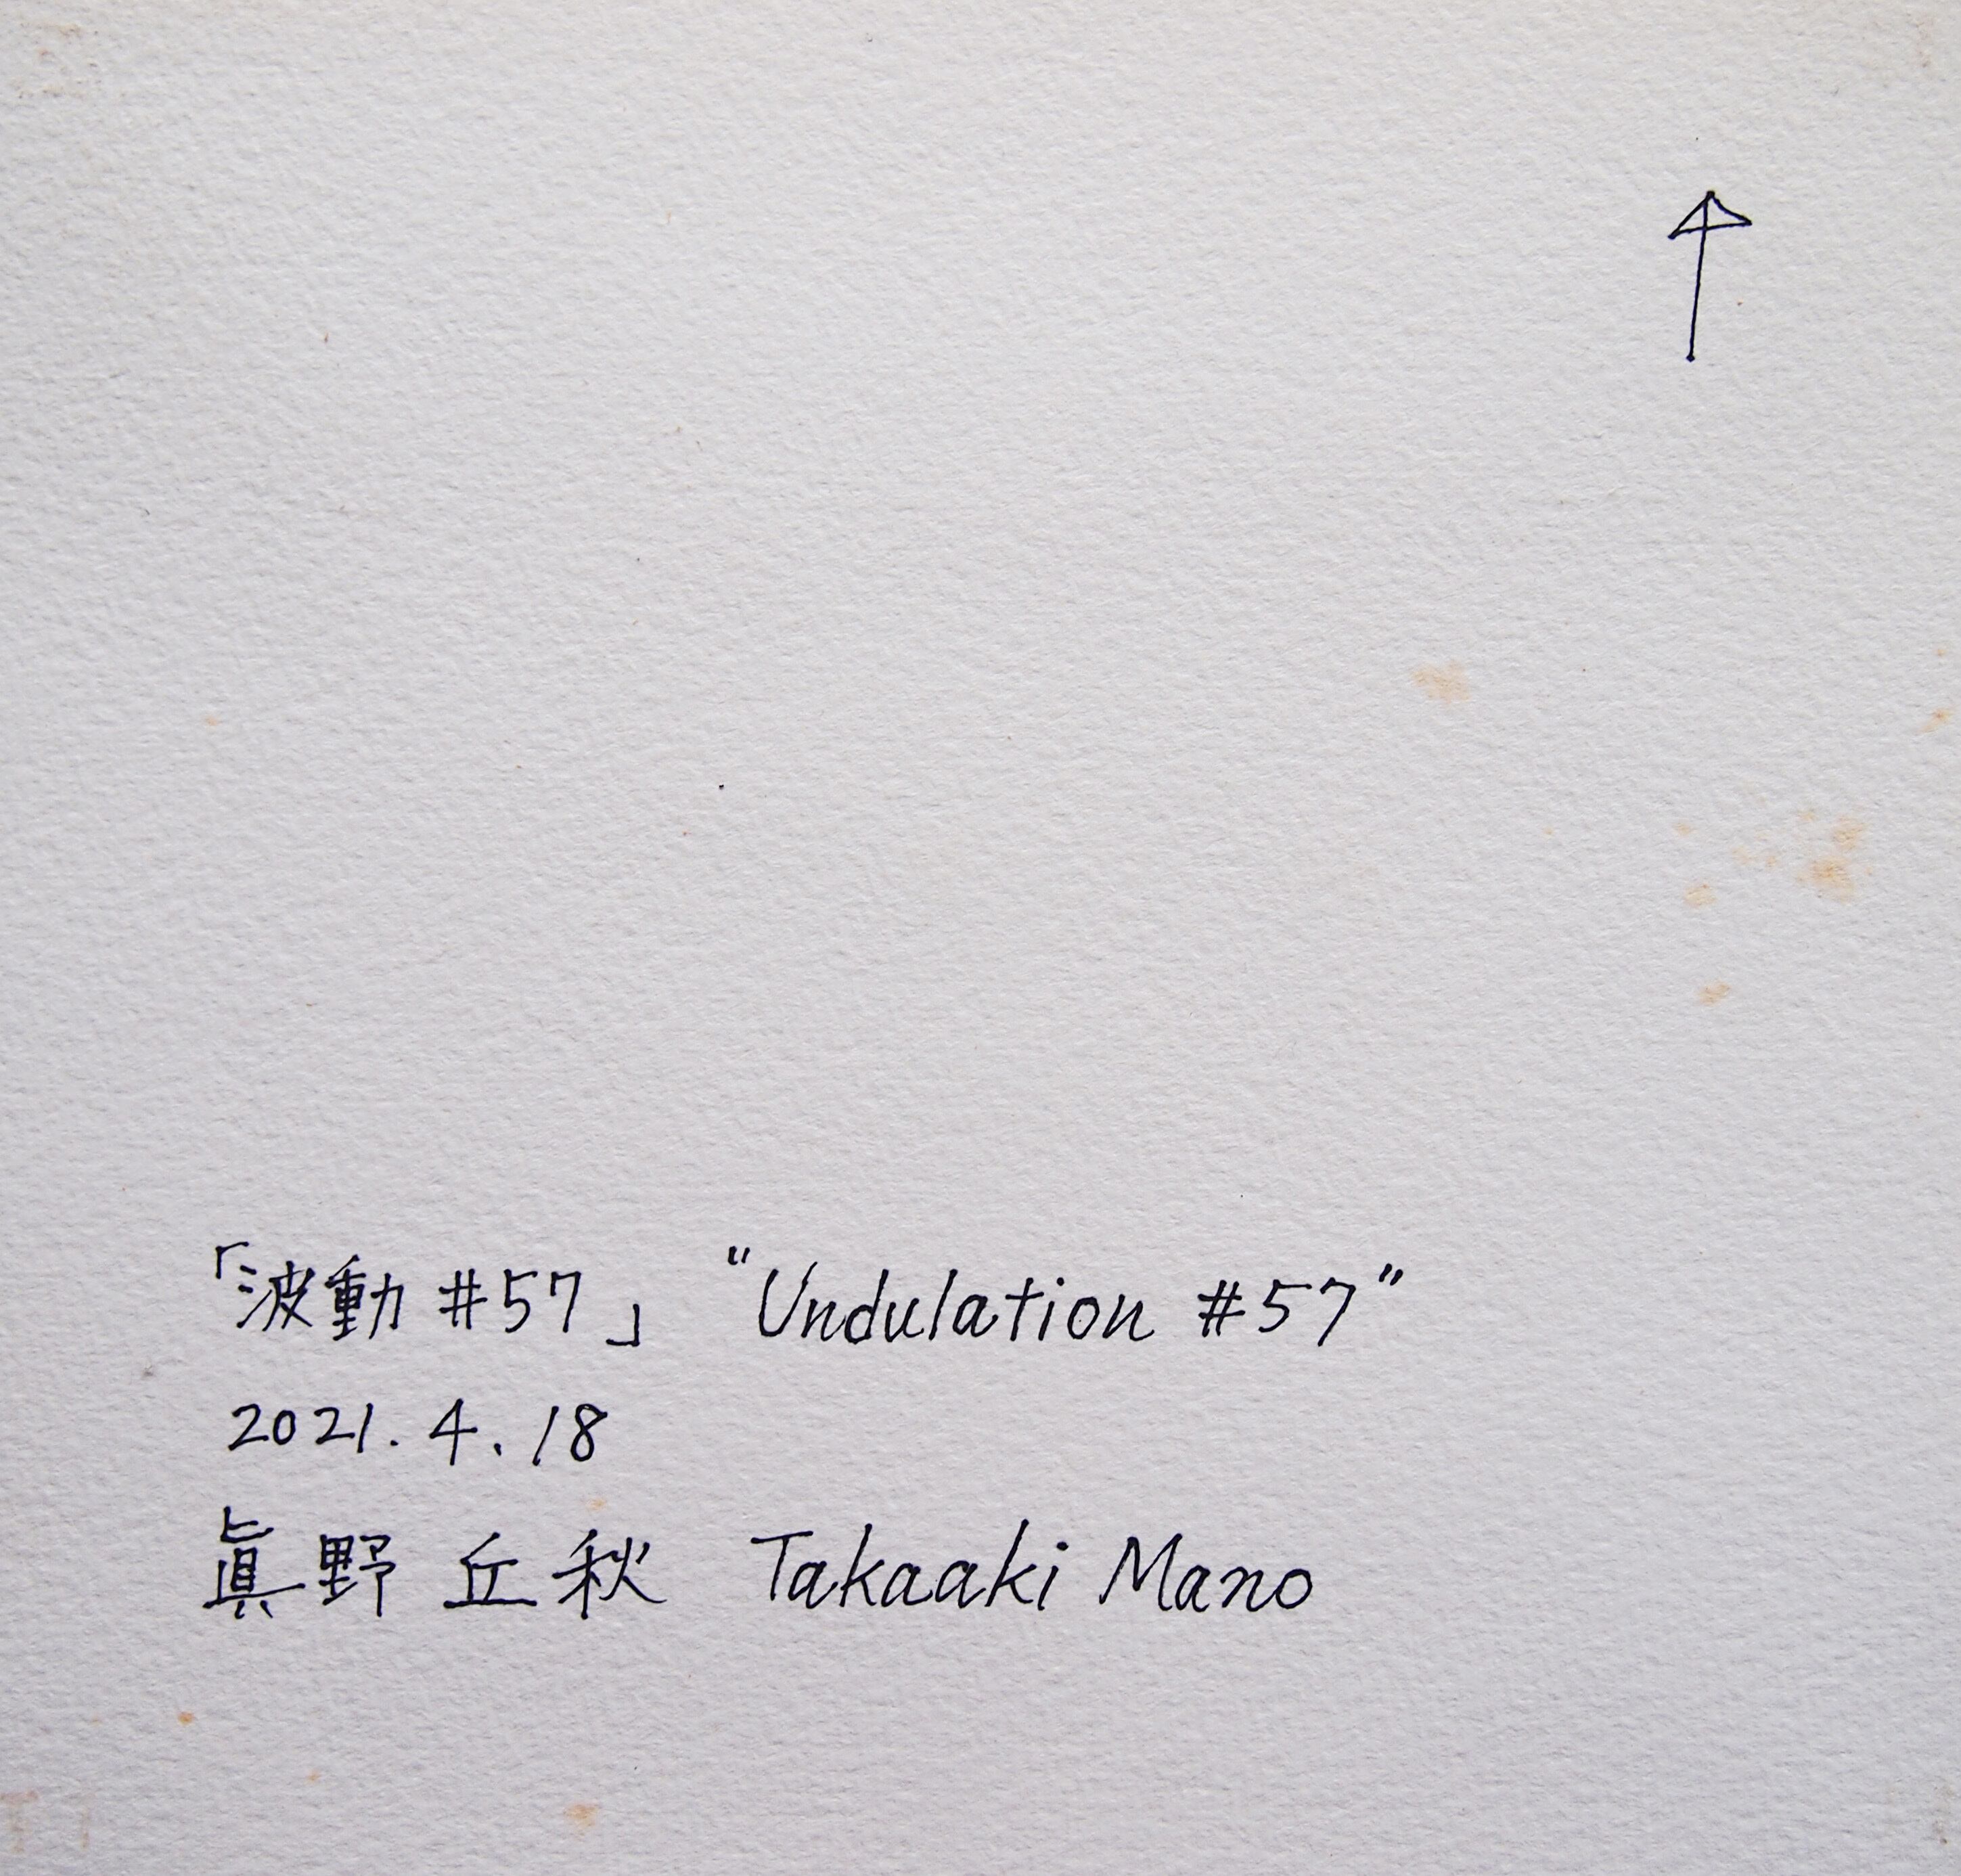 「波動 #57」 "Undulation #57"
2021. 4. 18
眞野 丘秋 Takaaki Mano